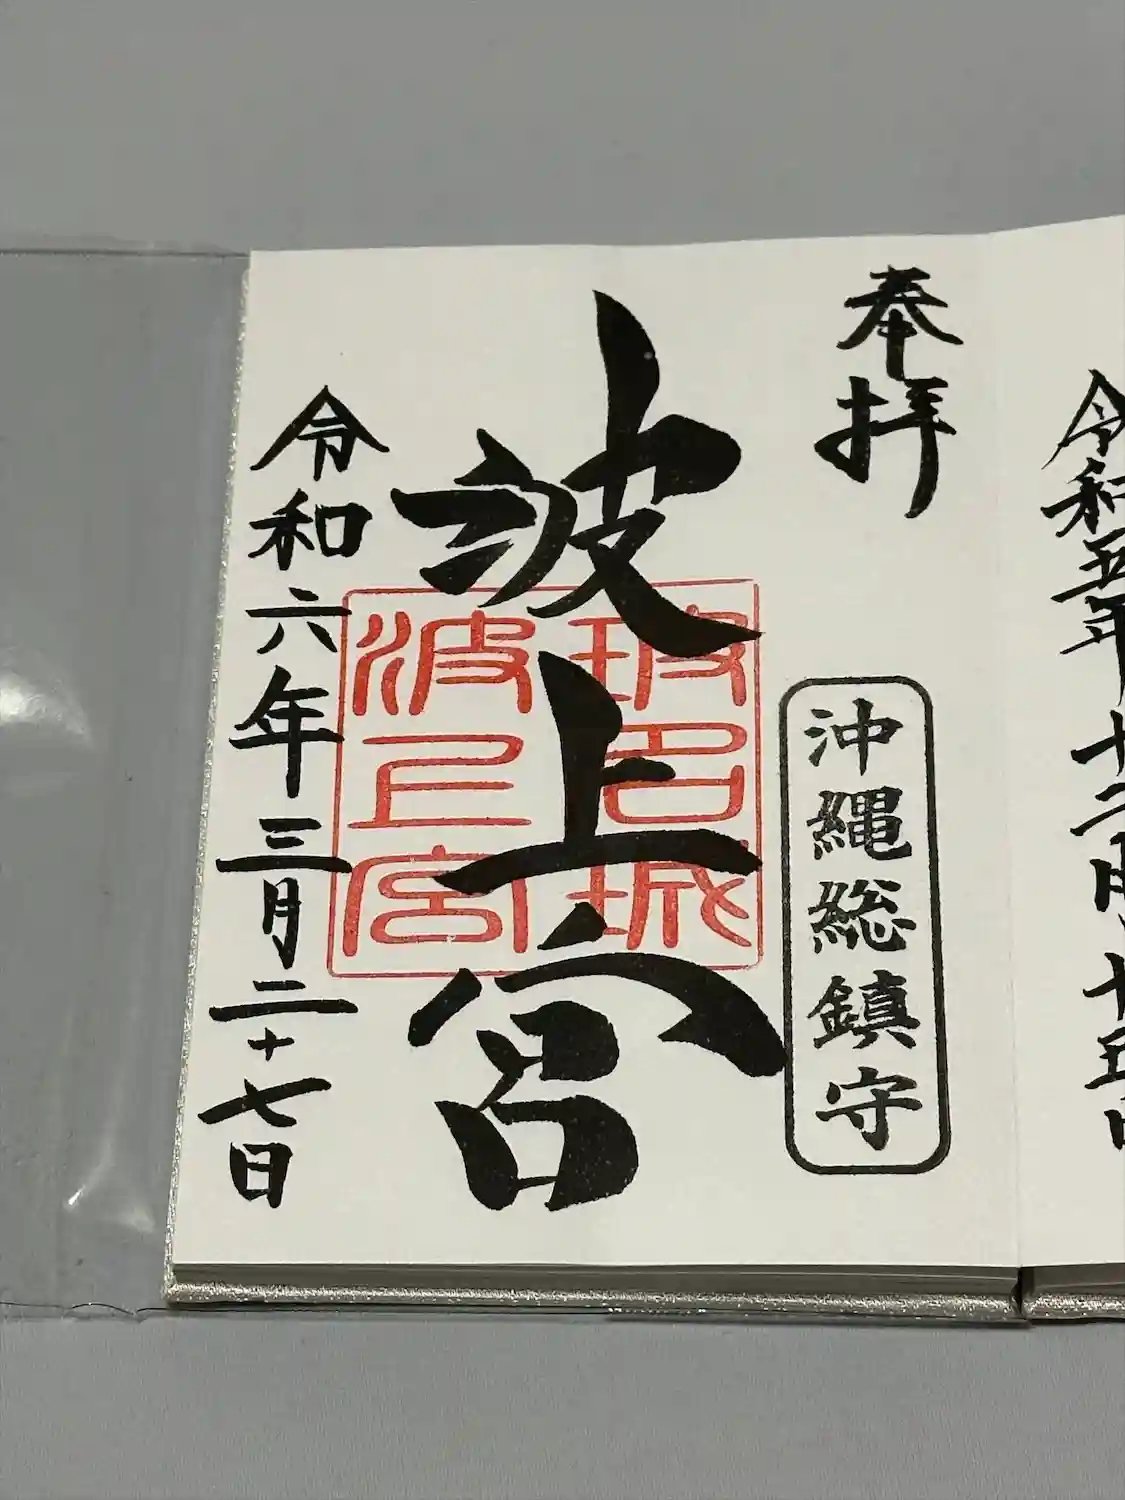 令和五年十二月十五日
奉拝
沖縄総鎮守
波上宮
玻名城
波上宮
令和六年三月二十七日